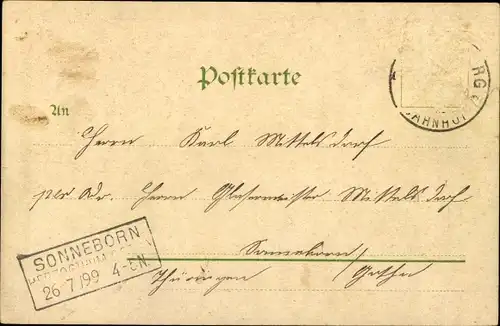 Postkarte
RG
BAHNHOF
An
Herrn Karl Mittelsdorf
per Adr. Herrn Glasermeister Mittelsdorf
Sonneborn / Gotha
Thüringen
SONNEBORN
26 7/99 4-5N.